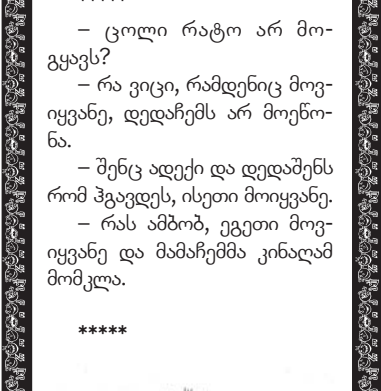 – ცოლი რატო არ მო-
გყავს?
– რა ვიცი, რამდენიც მოვ-
იყვანე, დედაჩემს არ მოეწო-
ნა.
– შენც ადექი და დედაშენს
რომ ჰგავდეს, ისეთი მოიყვანე.
– რას ამბობ, ეგეთი მოვ-
იყვანე და მამაჩემმა კინაღამ
მომკლა.
*****